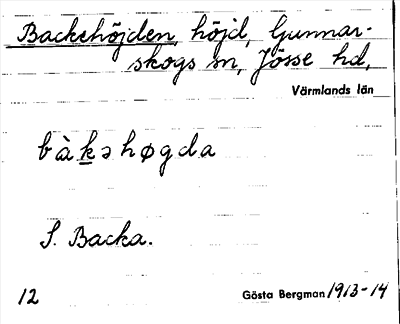 Backehöjden, höjd, Gunnar-
skogs sn, Jösse hd,
Värmlands län
bàkəhøgda
S. Backa.
12
Gösta Bergman 1913-14